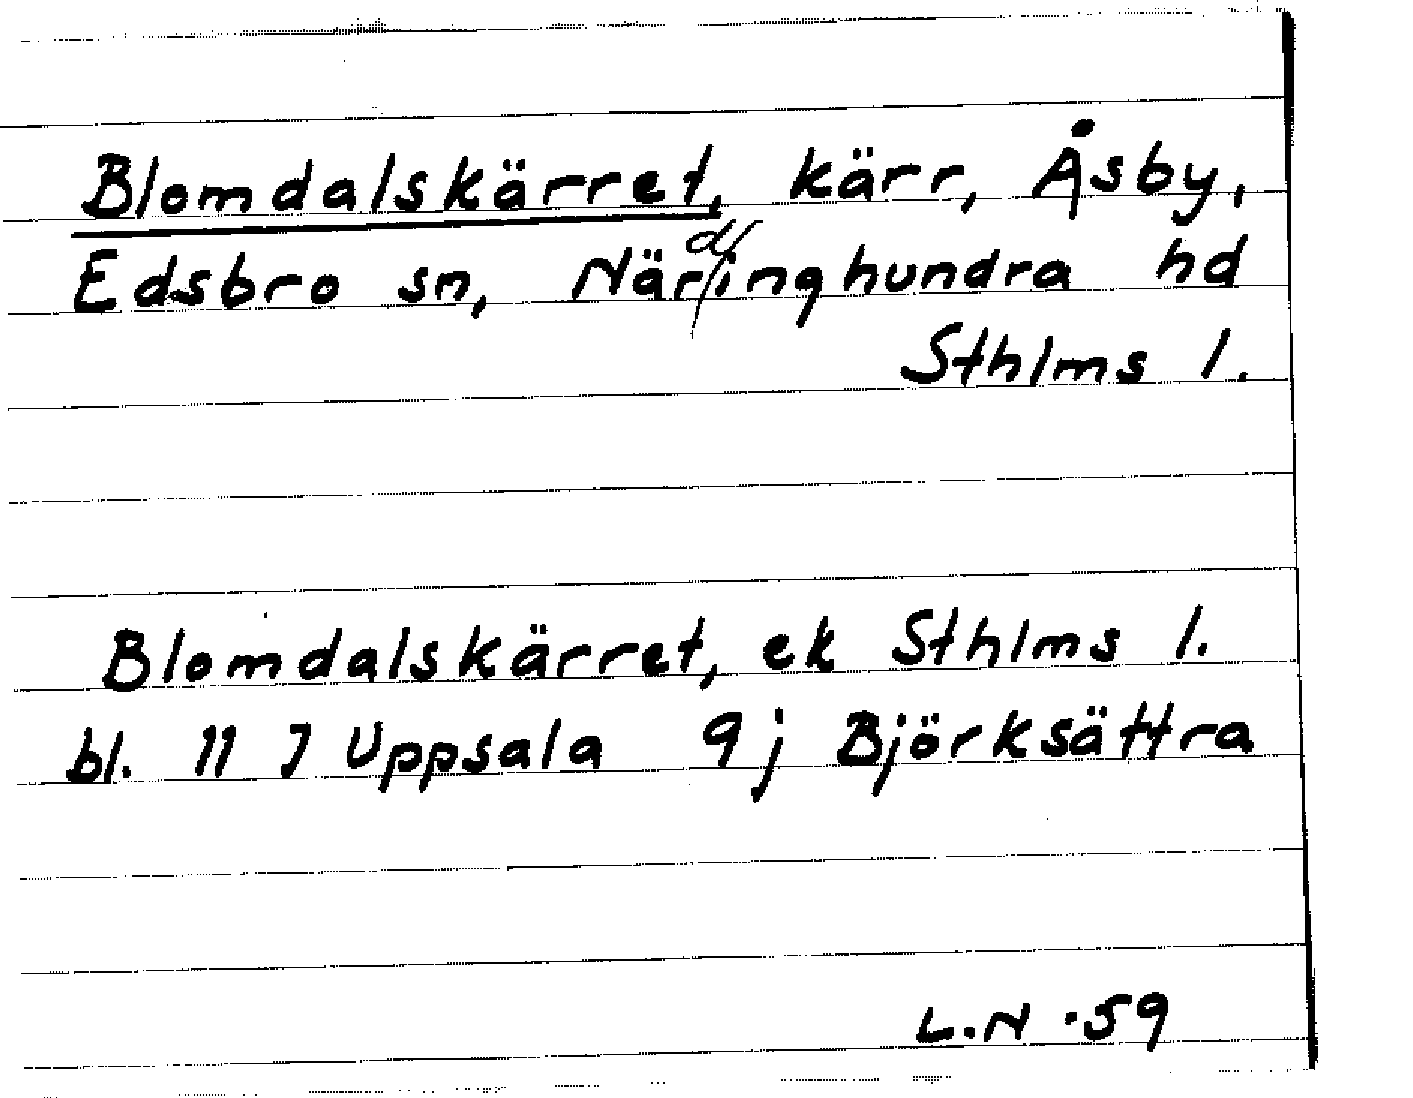 Blomdalskärret, kärr, Åsby,
Edsbro sn, Närdinghundra hd
Sthlms l.
Blomdalskärret, ek Sthlms l.
bl. 11 J Uppsala 9j Björksättra
L.N -59